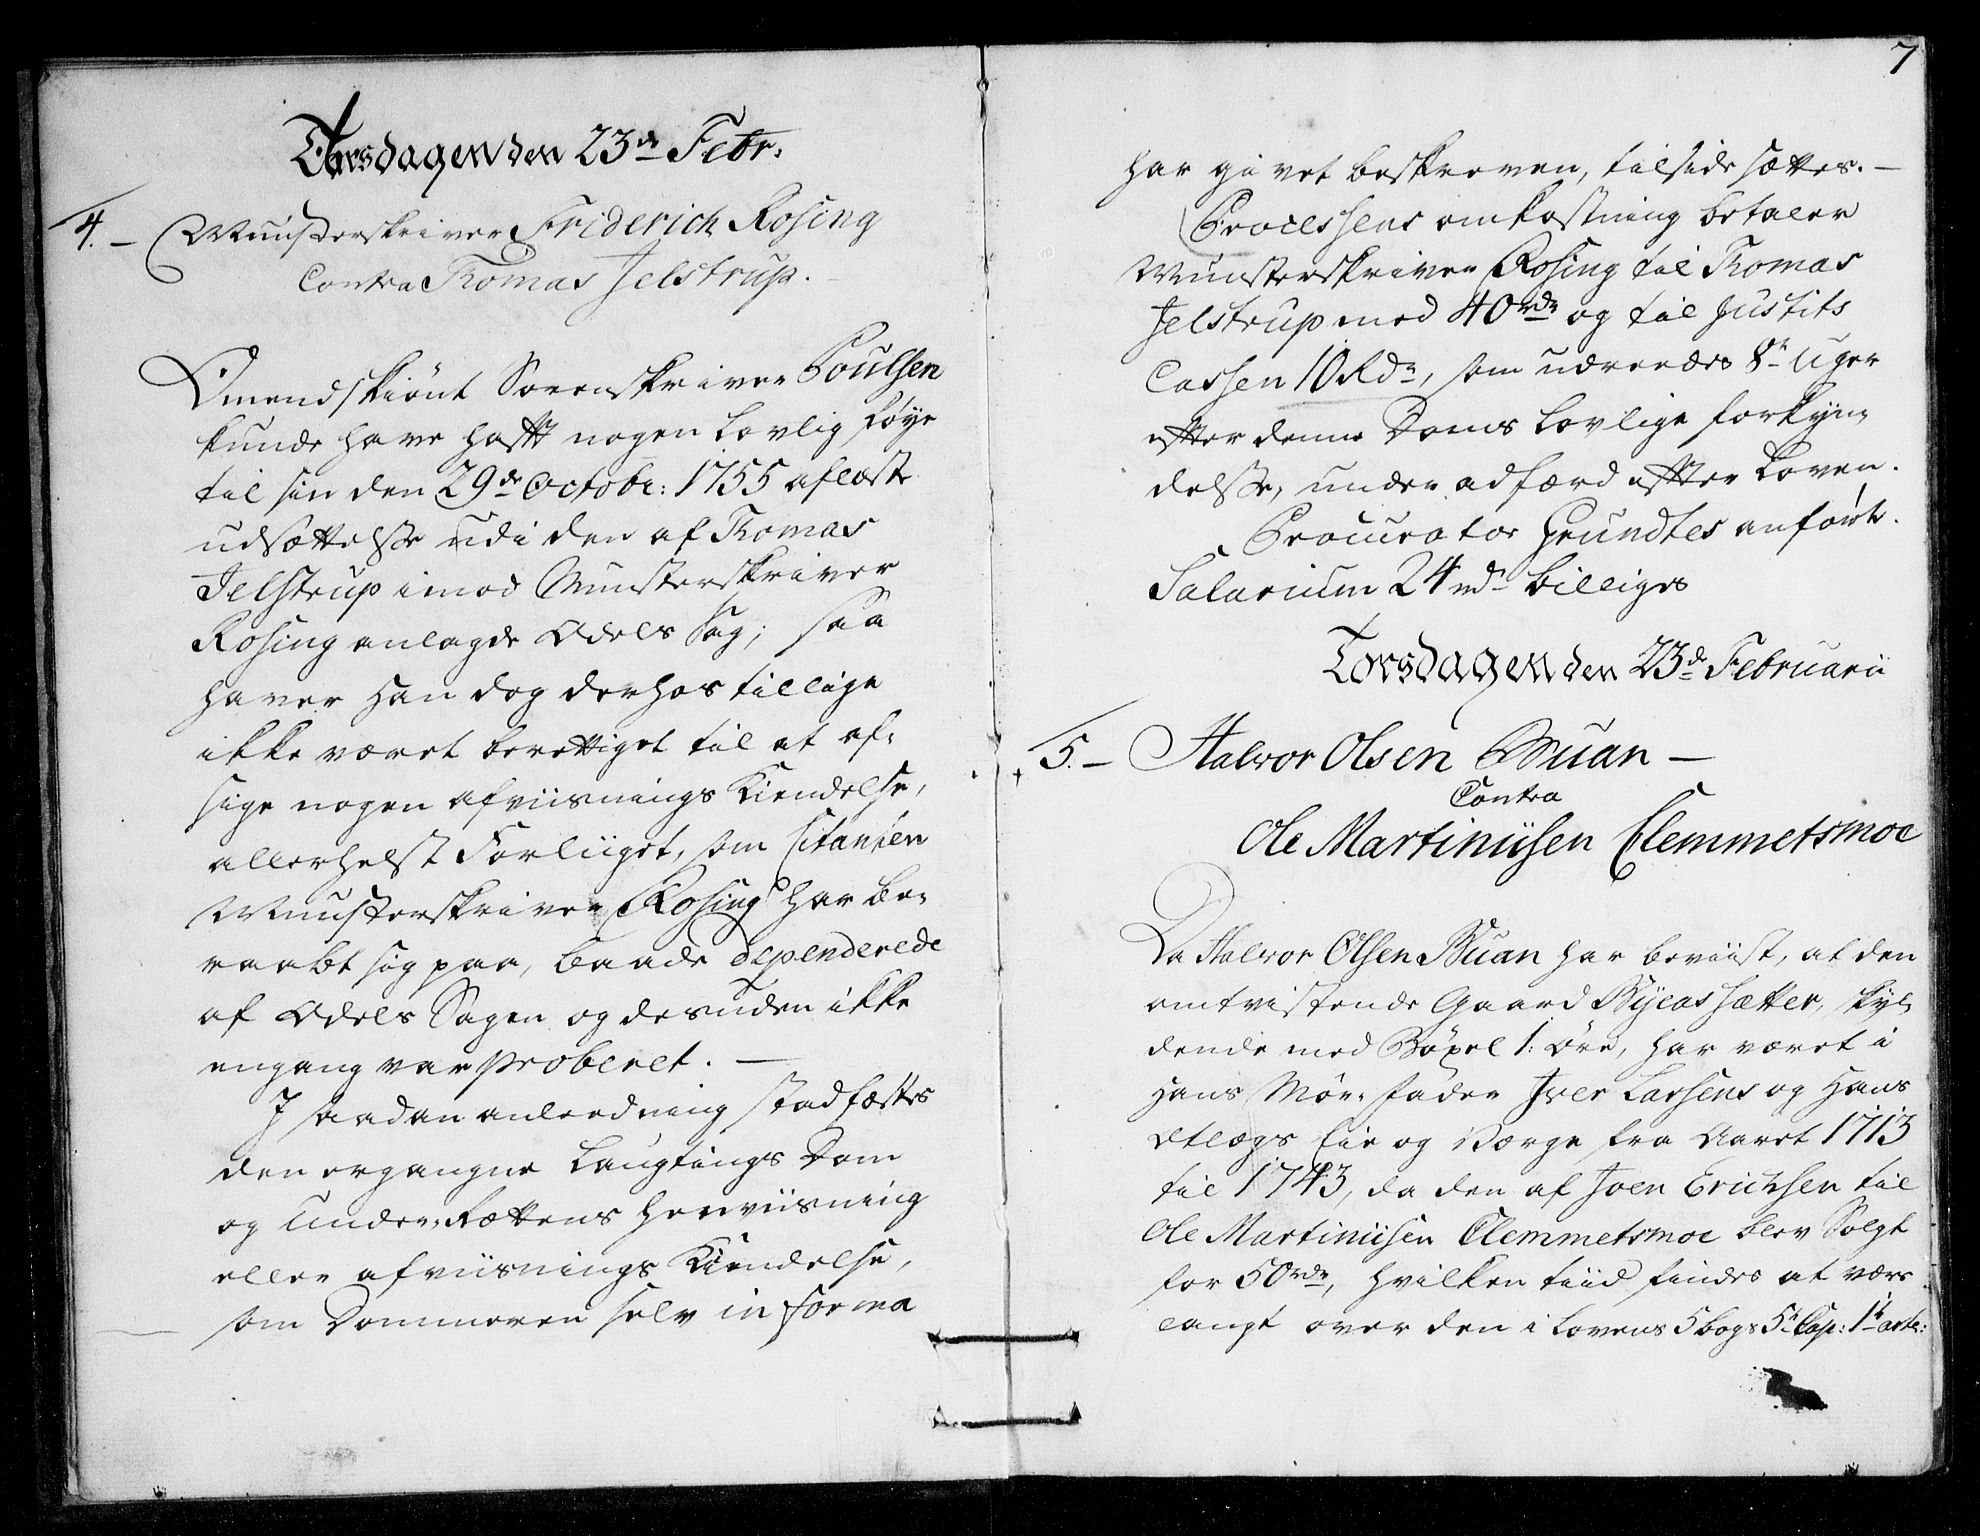 Torsdagen den 23de Febr.
4. – Munsterskriver Friderich Rosing
Contra Thomas Jelstrup.
Omendskiönt Sorenskriver Poulsen
kunde have hafft nogen lovlig föye
til sin den 29de Octobr: 1755 aflæste
udsættelse udi den af Thomas
Jelstrup imod Munsterskriver
Rosing anlagde Odels Sag; saa
haver han dog derhos tillige
ikke været berettiget til at af-
sige nogen afviisnings Kiendelse,
allerhelst Forliiget, som Citanten
Munsterskriver Rosing har be-
raabt sig paa, baade dependerede
af Odels Sagen og desuden ikke
engang var proberet. –
I saadan anledning stadfæstes
den ergangne Laugtings Dom
og Under-Rættens henviisning
eller afviisnings Kiendelse,
som Dommeren selv in forma
7
har givet beskreven, tilside sættes. –
Processens omkostning betaler
Munsterskriver Rosing til Thomas
Jelstrup med 40 rdr og til Justits
Cassen 10 Rdr, som udreedes 8te Uger
efter denne Doms lovlige forkyn-
delse, under adfærd efter Loven.
Procurator Grundtes anförte
Salarium 24 rdr billiges
Torsdagen den 23de Februarii
5. – Halvor Olsen Buan –
Contra
Ole Martinusen Clemmetsmoe
Da Halvor Olsen Buan har beviist, at den
omtvistende Gaard Byeassætter, skyl-
dende med Böxel 1: Öre, har været i
hans Mor-fader Iver Larsens og hans
Ætlægs Eie og Værge fra Aaret 1713
til 1743, da den af Joen Erichsen til
Ole Martinusen Clemmetsmoe blev Solgt
for 50 rdr, hvilken tiid findes at være
langt over den i Lovens 5 bogs 5te Cap: 1te artc: